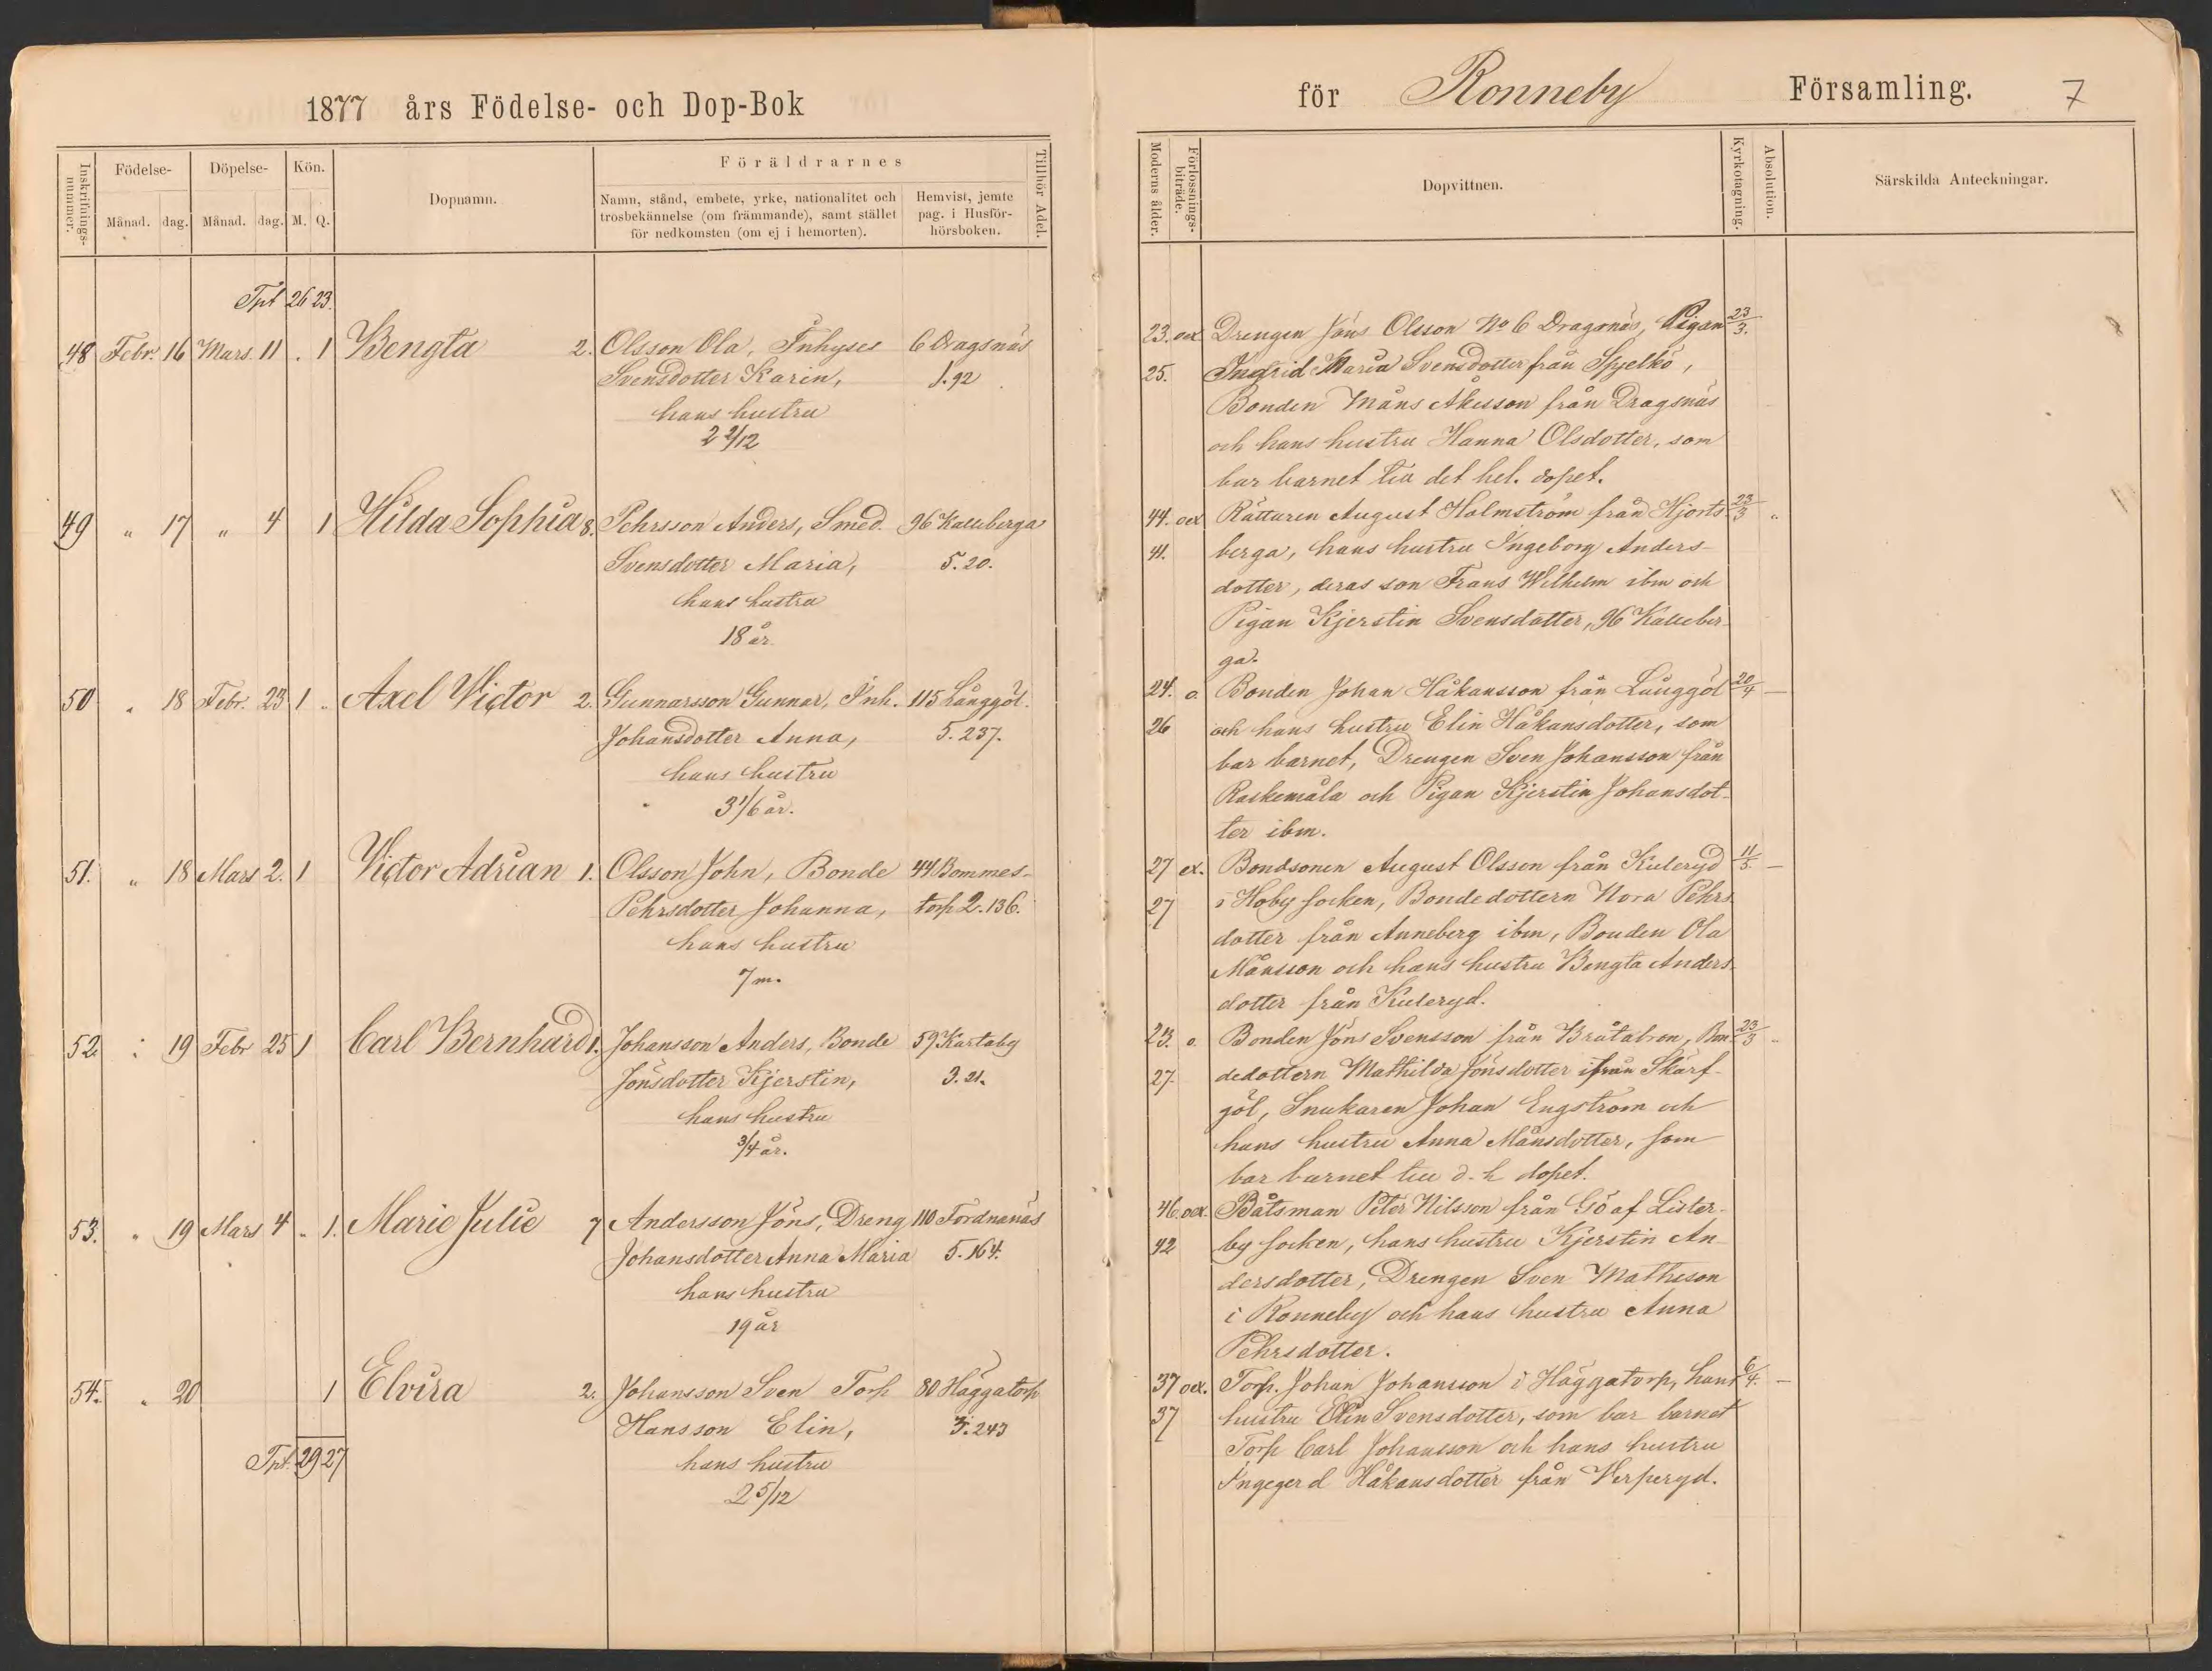 1877 års Födelse- och Dop-Bok
Inskrifnings-nummer.
Födelse-
Månad. dag.
Döpelse-
Månad. dag.
Kön.
M. Q.
Dopnamn.
Föräldrarnes
Namn, stånd, embete, yrke, nationalitet och
trosbekännelse (om främmande), samt stället
för nedkomsten (om ej i hemorten).
Hemvist, jemte
pag. i Husför-
hörsboken.
Tillhör Adel.
Tpt 26 23.
48 Febr. 16 Mars. 11 . 1 Bengta 2. Olsson Ola, Inhyses 6 Dragsnäs
Svensdotter Karin, 1.92
hans hustru
2 2/12
49 " 17 " 4 1 Hilda Sophia 8. Pehrsson Anders, Smed. 96 Kalleberga
Svensdotter Maria, 5.20.
hans hustru
18 år.
50 " 18 Febr. 23 1 .. Axel Victor 2. Gunnarsson Gunnar, Inh. 115 Långgöl.
Johansdotter Anna, 5.237.
hans hustru
3 1/6 år.
51. " 18 Mars 2. 1 Victor Adrian 1. Olsson John, Bonde 44 Bommes-
Pehrsdotter Johanna, torp 2.136.
hans hustru
7 m.
52. : 19 Febr 25 1 Carl Bernhard 1. Johansson Anders, Bonde 59 Kartaby
Jönsdotter Kjerstin, 3.21.
hans hustru
3/4 år.
53. " 19 Mars 4 .. 1. Marie Julie 7 Andersson Jöns, Dreng 110 Tordnanäs
Johansdotter Anna Maria 5.164.
hans hustru
19 år
54. " 20 1 Elvira 2. Johansson Sven Torp 80 Häggatorp
Hansson Elin, 3.243
hans hustru
2 5/12
Tpt. 29 27
för Ronneby Församling. 7
Moderns ålder.
Förlossnings-biträde.
Dopvittnen.
Kyrkotagning.
Absolution.
Särskilda Anteckningar.
23. oex Drengen Jöns Olsson No 6 Dragsnäs, Pigan 23/3.
25. Ingrid Maria Svensdotter från Spjelkö,
Bonden Måns Åkesson från Dragsnäs
och hans hustru Hanna Olsdotter, som
bar barnet till det hel. dopet.
44. oex Rättaren August Holmström från Hjorts- 23/3 ..
41. berga, hans hustru Ingeborg Anders-
dotter, deras son Frans Wilhelm ibm och
Pigan Kjerstin Svensdotter, 96 Kalleber-
ga.
24. o Bonden Johan Håkansson från Långgöl 20/4 —
26 och hans hustru Elin Håkansdotter, som
bar barnet, Drengen Sven Johansson från
Raskemåla och Pigan Kjerstin Johansdot-
ter ibm.
27 ex. Bondsonen August Olsson från Kuleryd 11/5. —
27 i Hoby socken, Bondedottern Nora Pehrs
dotter från Anneberg ibm, Bonden Ola
Månsson och hans hustru Bengta Anders-
dotter från Kuleryd.
23. o. Bonden Jöns Svensson från Bråtabron, Bon- 23/3 ..
27. dedottern Mathilda Jönsdotter ifrån Skärf-
göl, Snickaren Johan Engström och
hans hustru Anna Månsdotter, som
bar barnet till d. h dopet.
46. oex. Båtsman Peter Nilsson från Gö af Lister-
42 by socken, hans hustru Kjerstin An-
dersdotter, Drengen Sven Mathisson
i Ronneby och hans hustru Anna
Pehrsdotter.
37 oex. Torp. Johan Johansson i Häggatorp, hans 6/4. —
37 hustru Elin Svensdotter, som bar barnet
Torp Carl Johansson och hans hustru
Ingegerd Håkansdotter från Verperyd.